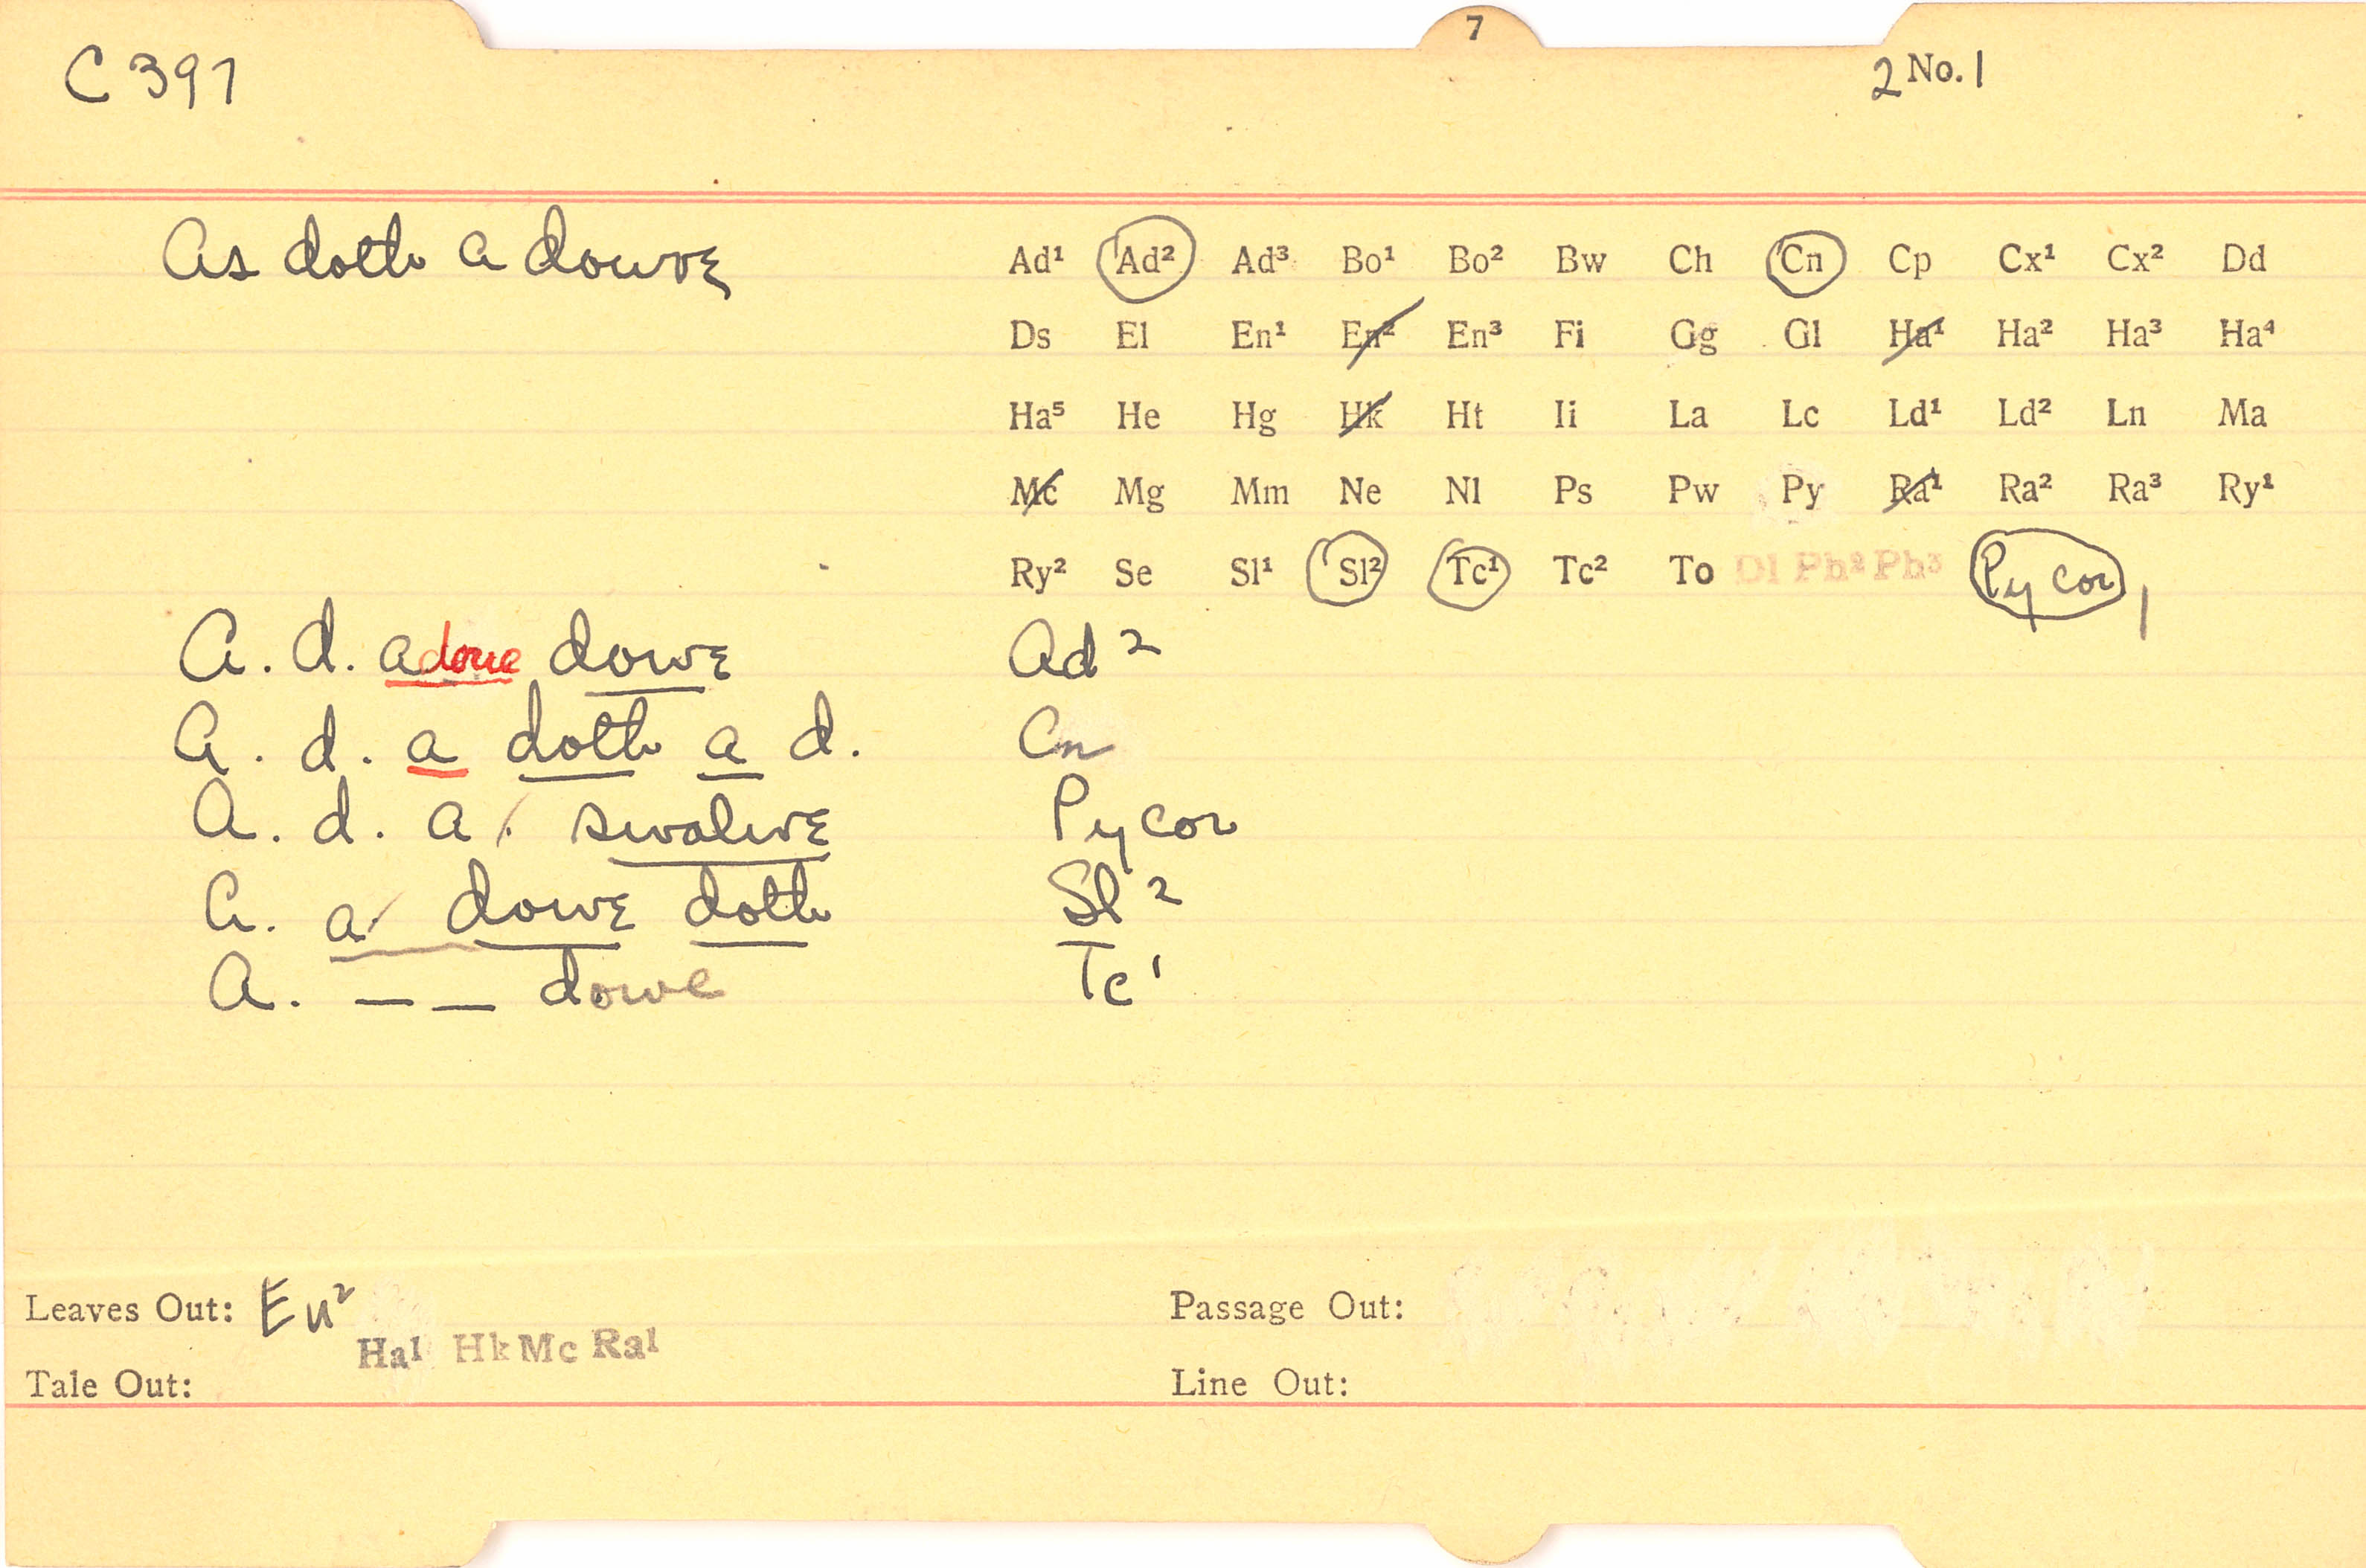 7
C 397
2 No. 1
As doth a dowve
Ad¹ Ad² Ad³ Bo¹ Bo² Bw Ch Cn Cp Cx¹ Cx² Dd
Ds El En¹ En² En³ Fi Gg Gl Ha¹ Ha² Ha³ Ha⁴
Ha⁵ He Hg Hk Ht Ii La Lc Ld¹ Ld² Ln Ma
Mc Mg Mm Ne Nl Ps Pw Py Ra¹ Ra² Ra³ Ry¹
Ry² Se Sl¹ Sl² Tc¹ Tc² To Dl Ph² Ph³ Py cor
A. d. adoue dowve Ad²
A. d. a doth a d. Cn
A. d. a. swalwe Py cor
A. a dowve doth Sl²
A. — — dowe Tc¹
Leaves Out: En²
Ha1 Hk Mc Ra1
Passage Out:
Tale Out:
Line Out: